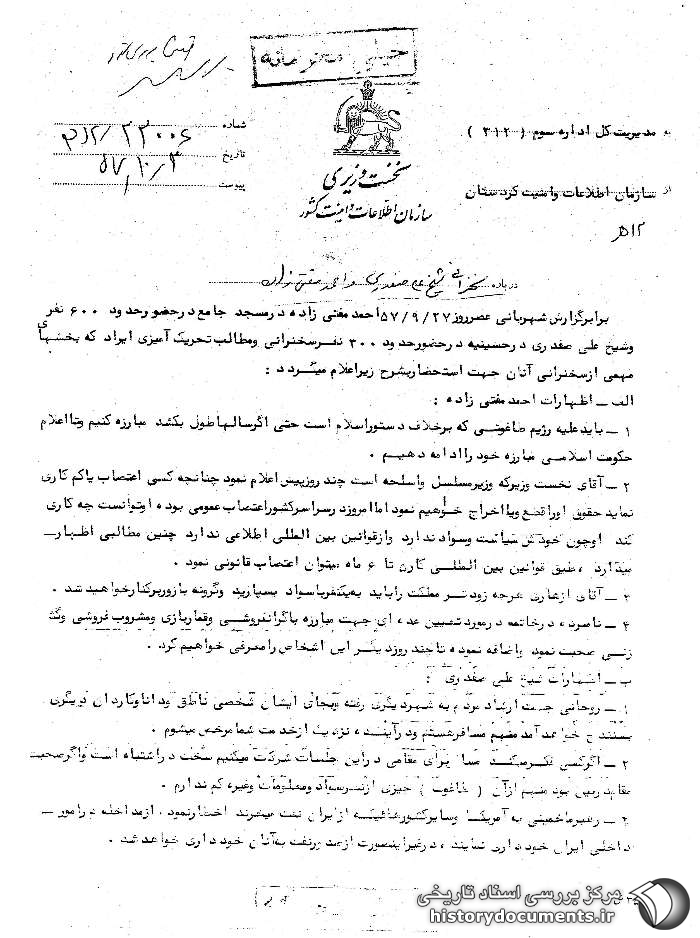 خیلی محرمانه
به مدیریت کل اداره سوم ( ۳۱۲ )
از سازمان اطلاعات وامنیت کردستان
۱۲هـ
نخست وزیری
سازمان اطلاعات و امنیت کشور
شماره
تاریخ ۵۷/۱۰/۳
پیوست
درباره سخنرانی شیخ علی صفدری و احمد مفتی زاده
برابرگزارش شهربانی عصرروز ۵۷/۹/۲۷ احمد مفتی زاده درمسجد جامع درحضورحدود ۶۰۰ نفر
وشیخ علی صفدری درحسینیه درحضورحدود ۳۰۰ نفرسخنرانی ومطالب تحریک آمیزی ایراد که بخشهای
مهمی ازسخنرانی آنان جهت استحضاربشرح زیراعلام میگردد :
الف ــ اظهارات احمد مفتی زاده :
۱ ــ بایدعلیه رژیم طاغوتی که برخلاف دستوراسلام است حتی اگرسالهاطول بکشد مبارزه کنیم وتااعلام
حکومت اسلامی مبارزه خود راادامه دهیم .
۲ ــ آقای نخست وزیرکه وزیرمسلسل واسلحه است چند روزپیش اعلام نمود چنانچه کسی اعتصاب یاکم کاری
نماید حقوق اوراقطع ویااخراج خواهیم نمود اماامروزد رسراسرکشوراعتصاب عمومی بوده اونتوانست چه کاری
کند اوچون خودش سیاست وسواد ندارد وازقوانین بین المللی اطلاعی ندارد چنین مطالبی اظهارــ
میدارد ، طبق قوانین بین المللی کارگر تا ۶ ماه میتوان اعتصاب قانونی نمود .
۳ ــ آقای ازهاری هرچه زودتر مملکت رابا ید به یکنفرباسواد بسپارید وگرنه بازوربرکنارخواهید شد .
۴ ــ نامبرده درخاتمه درمورد تعیین عده ای جهت مبارزه باگرانفروشی وقماربازی ومشروب فروشی
زنی صحبت نمود واضافه نموده تاچند روزد یگر این اشخاص رامعرفی خواهیم کرد .
ب ــ اظهارات شیخ علی صفدری :
۱ ــ روحانی جهت ارشاد مردم به شهرد یگری رفته وبجای ایشان شخصی ناطق ودانا وکاردان دیگری
خواهد آمد منهم مسافرهستم ودرآینده نزدیک ازخدمت شما مرخص میشوم .
۲ ــ اگرکسی فکرمیکند ما برای مقامی دراین جلسات شرکت میکنیم سخت دراشتباه است واگرصحبت
مقام درمیان بود منهم ازآن ( طاغوت ) چیزی ازنظرسواد ومعلومات وغیره کم ندارم .
۳ ــ رهبرماخمینی به آمریکا وسایرکشورهائیکه ازایران نفت میخرند اخطارنمود ، ازمداخله درامور ــ
داخلی ایران خود داری نمایند ، درغیراینصورت ازصد ورنفت به آنان خود داری خواهد شد .
مرکز بررسی اسناد تاریخی
historydocuments.ir